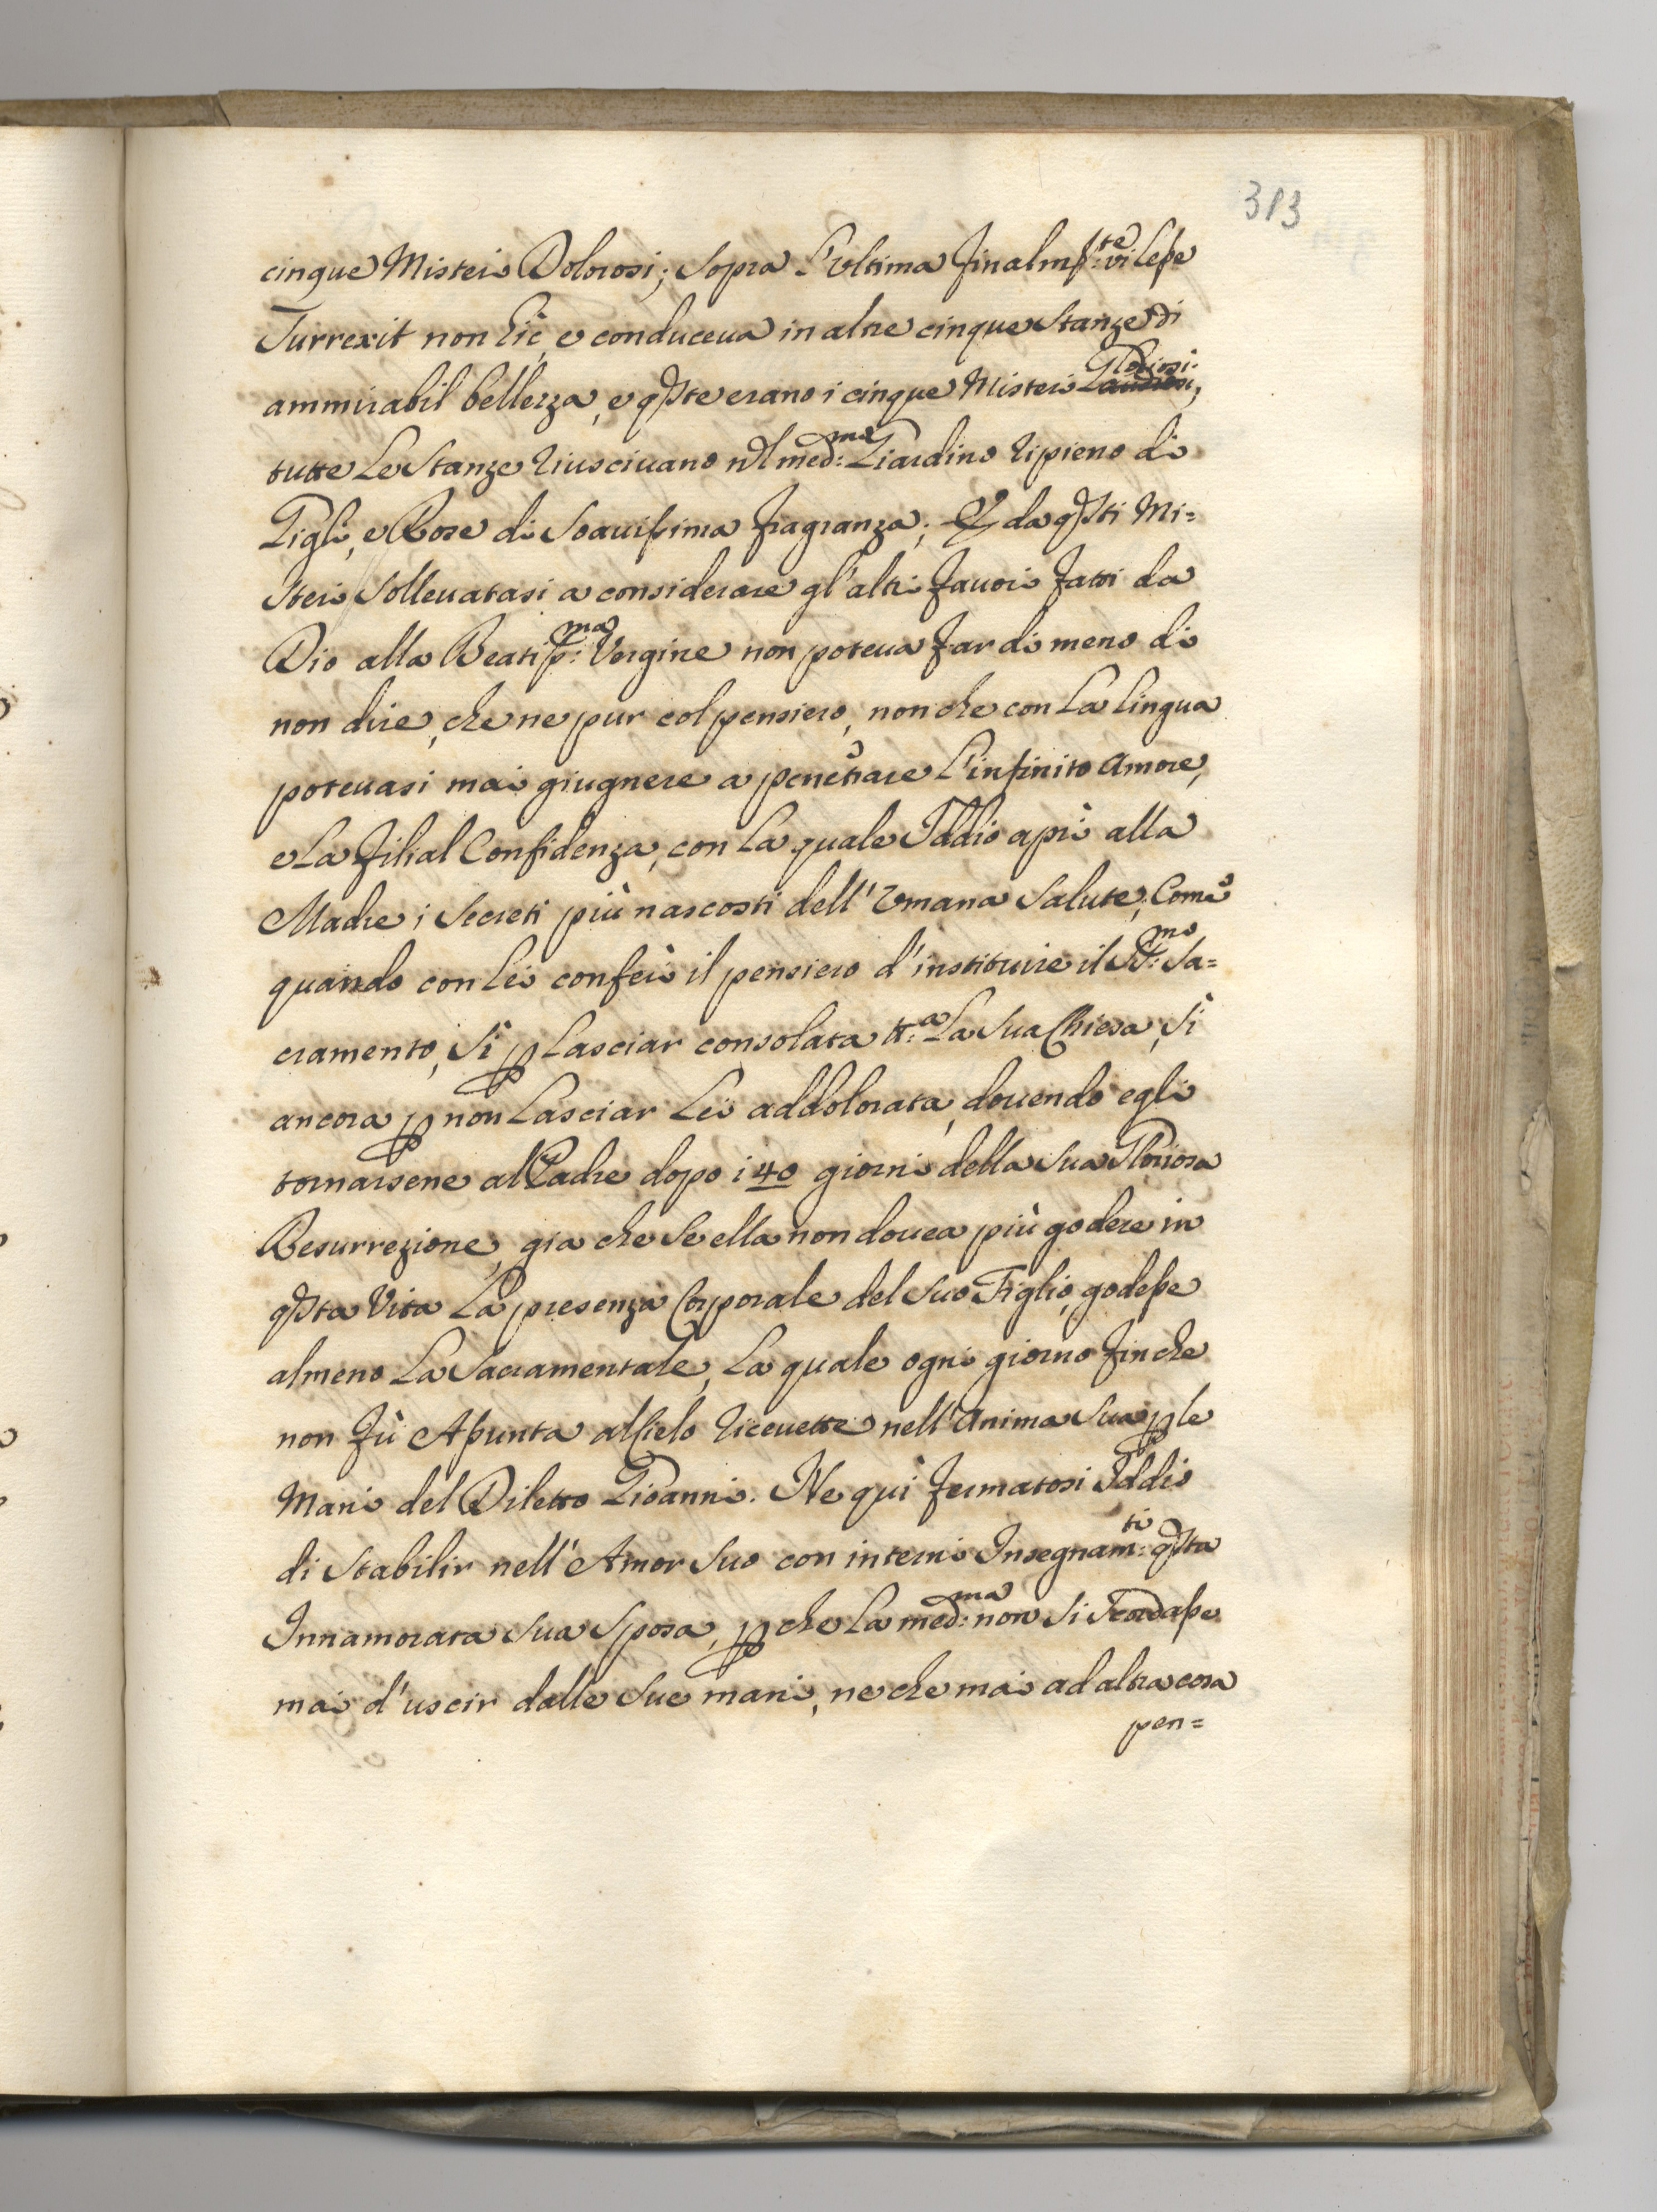 313
cinque Misteri Dolorosi; Sopra L'Vltima Finalmte: vi Lesse
Surrexit non hìc, e conduceua in altre cinque Stanze di
ammirabil bellezza, e qste erano i cinque Misteri Gloriosi.
tutte Le Stanze riusciuano nel medmo: Giardino ripieno di
Gigli, e Rose di Soauissima Fragranza; Et da qsti Mi=
steri Solleuatasi a considerare gl'altri Fauori Fatti da
Dio alla Beatissma: Vergine non poteua Far di meno di
non dire, che ne pur col pensiero, non che con La Lingua
poteuasi mai giugnere a penetrare L'infinito Amore,
e La Filial Confidenza, con La quale Iddio aprì alla
Madre i Secreti più nascosti dell'Vmana Salute, Come
quando con Lei conferì il pensiero d'instituire il SSmo: Sa=
cramento, Sì p Lasciar consolata tta: La Sua Chiesa, Sì
ancora p non Lasciar Lei addolorata, douendo egli
tornarsene al Padre dopo i 40 giorni della Sua Gloriosa
Resurrezione, gia che Se ella non douea più godere in
qsta Vita La presenza Corporale del Suo Figlio, godesse
almeno La Sacramentale, La quale ogni giorno Finche
non Fù Assunta al Cielo riceuette nell'Anima Sua p le
Mani del Diletto Gioanni. Ne quì Fermatosi Iddio
di Stabilir nell'Amor Suo con interni Insegnamti: qsta
Innamorata Sua Sposa, p che La medma: non Si Scordasse
mai d'uscir dalle Sue mani, ne che mai ad altra cosa
pen=